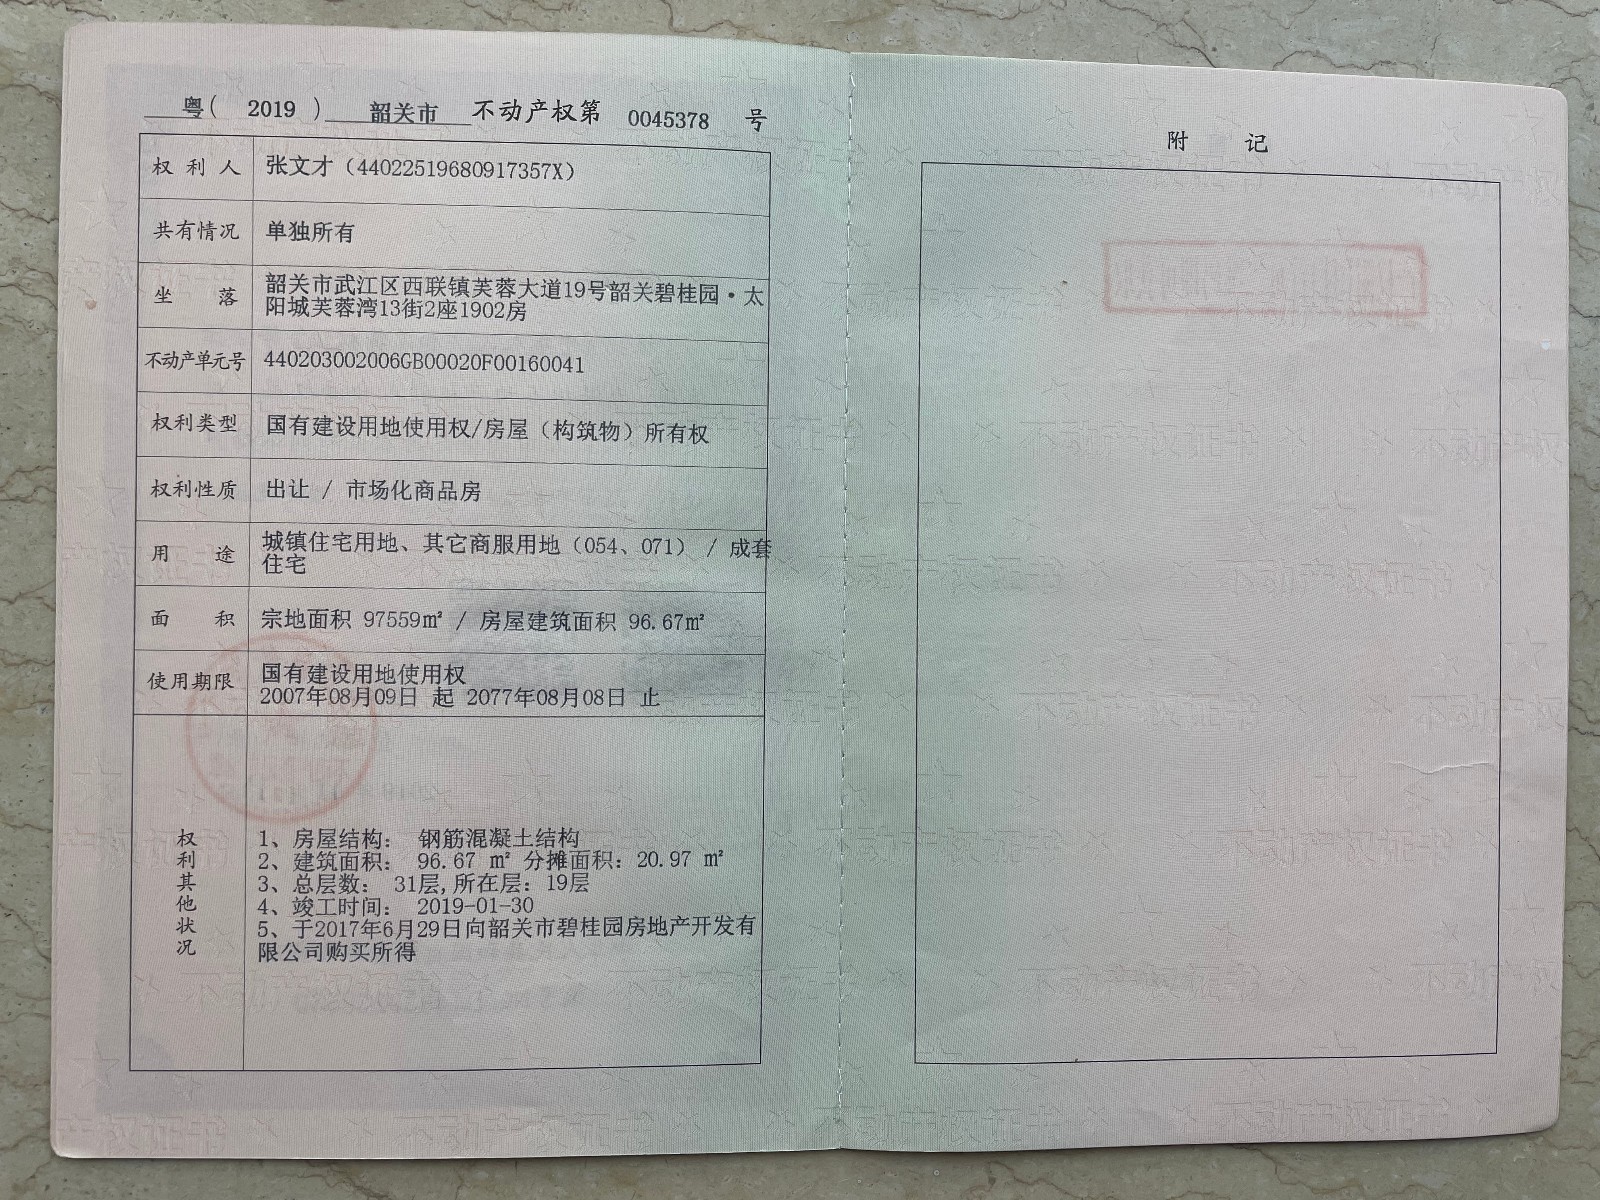 粤( 2019 ) 韶关市 不动产权第 0045378 号
权利人 张文才（44022519680917357X）
共有情况 单独所有
坐落 韶关市武江区西联镇芙蓉大道19号韶关碧桂园·太
阳城芙蓉湾13街2座1902房
不动产单元号 440203002006GB00020F00160041
权利类型 国有建设用地使用权/房屋（构筑物）所有权
权利性质 出让 / 市场化商品房
用途 城镇住宅用地、其它商服用地（054、071） / 成套
住宅
面积 宗地面积 97559㎡ / 房屋建筑面积 96.67㎡
使用期限 国有建设用地使用权
2007年08月09日 起 2077年08月08日 止
权利其他状况
1、房屋结构： 钢筋混凝土结构
2、建筑面积： 96.67 ㎡ 分摊面积：20.97 ㎡
3、总层数： 31层,所在层：19层
4、竣工时间： 2019-01-30
5、于2017年6月29日向韶关市碧桂园房地产开发有
限公司购买所得
附 记